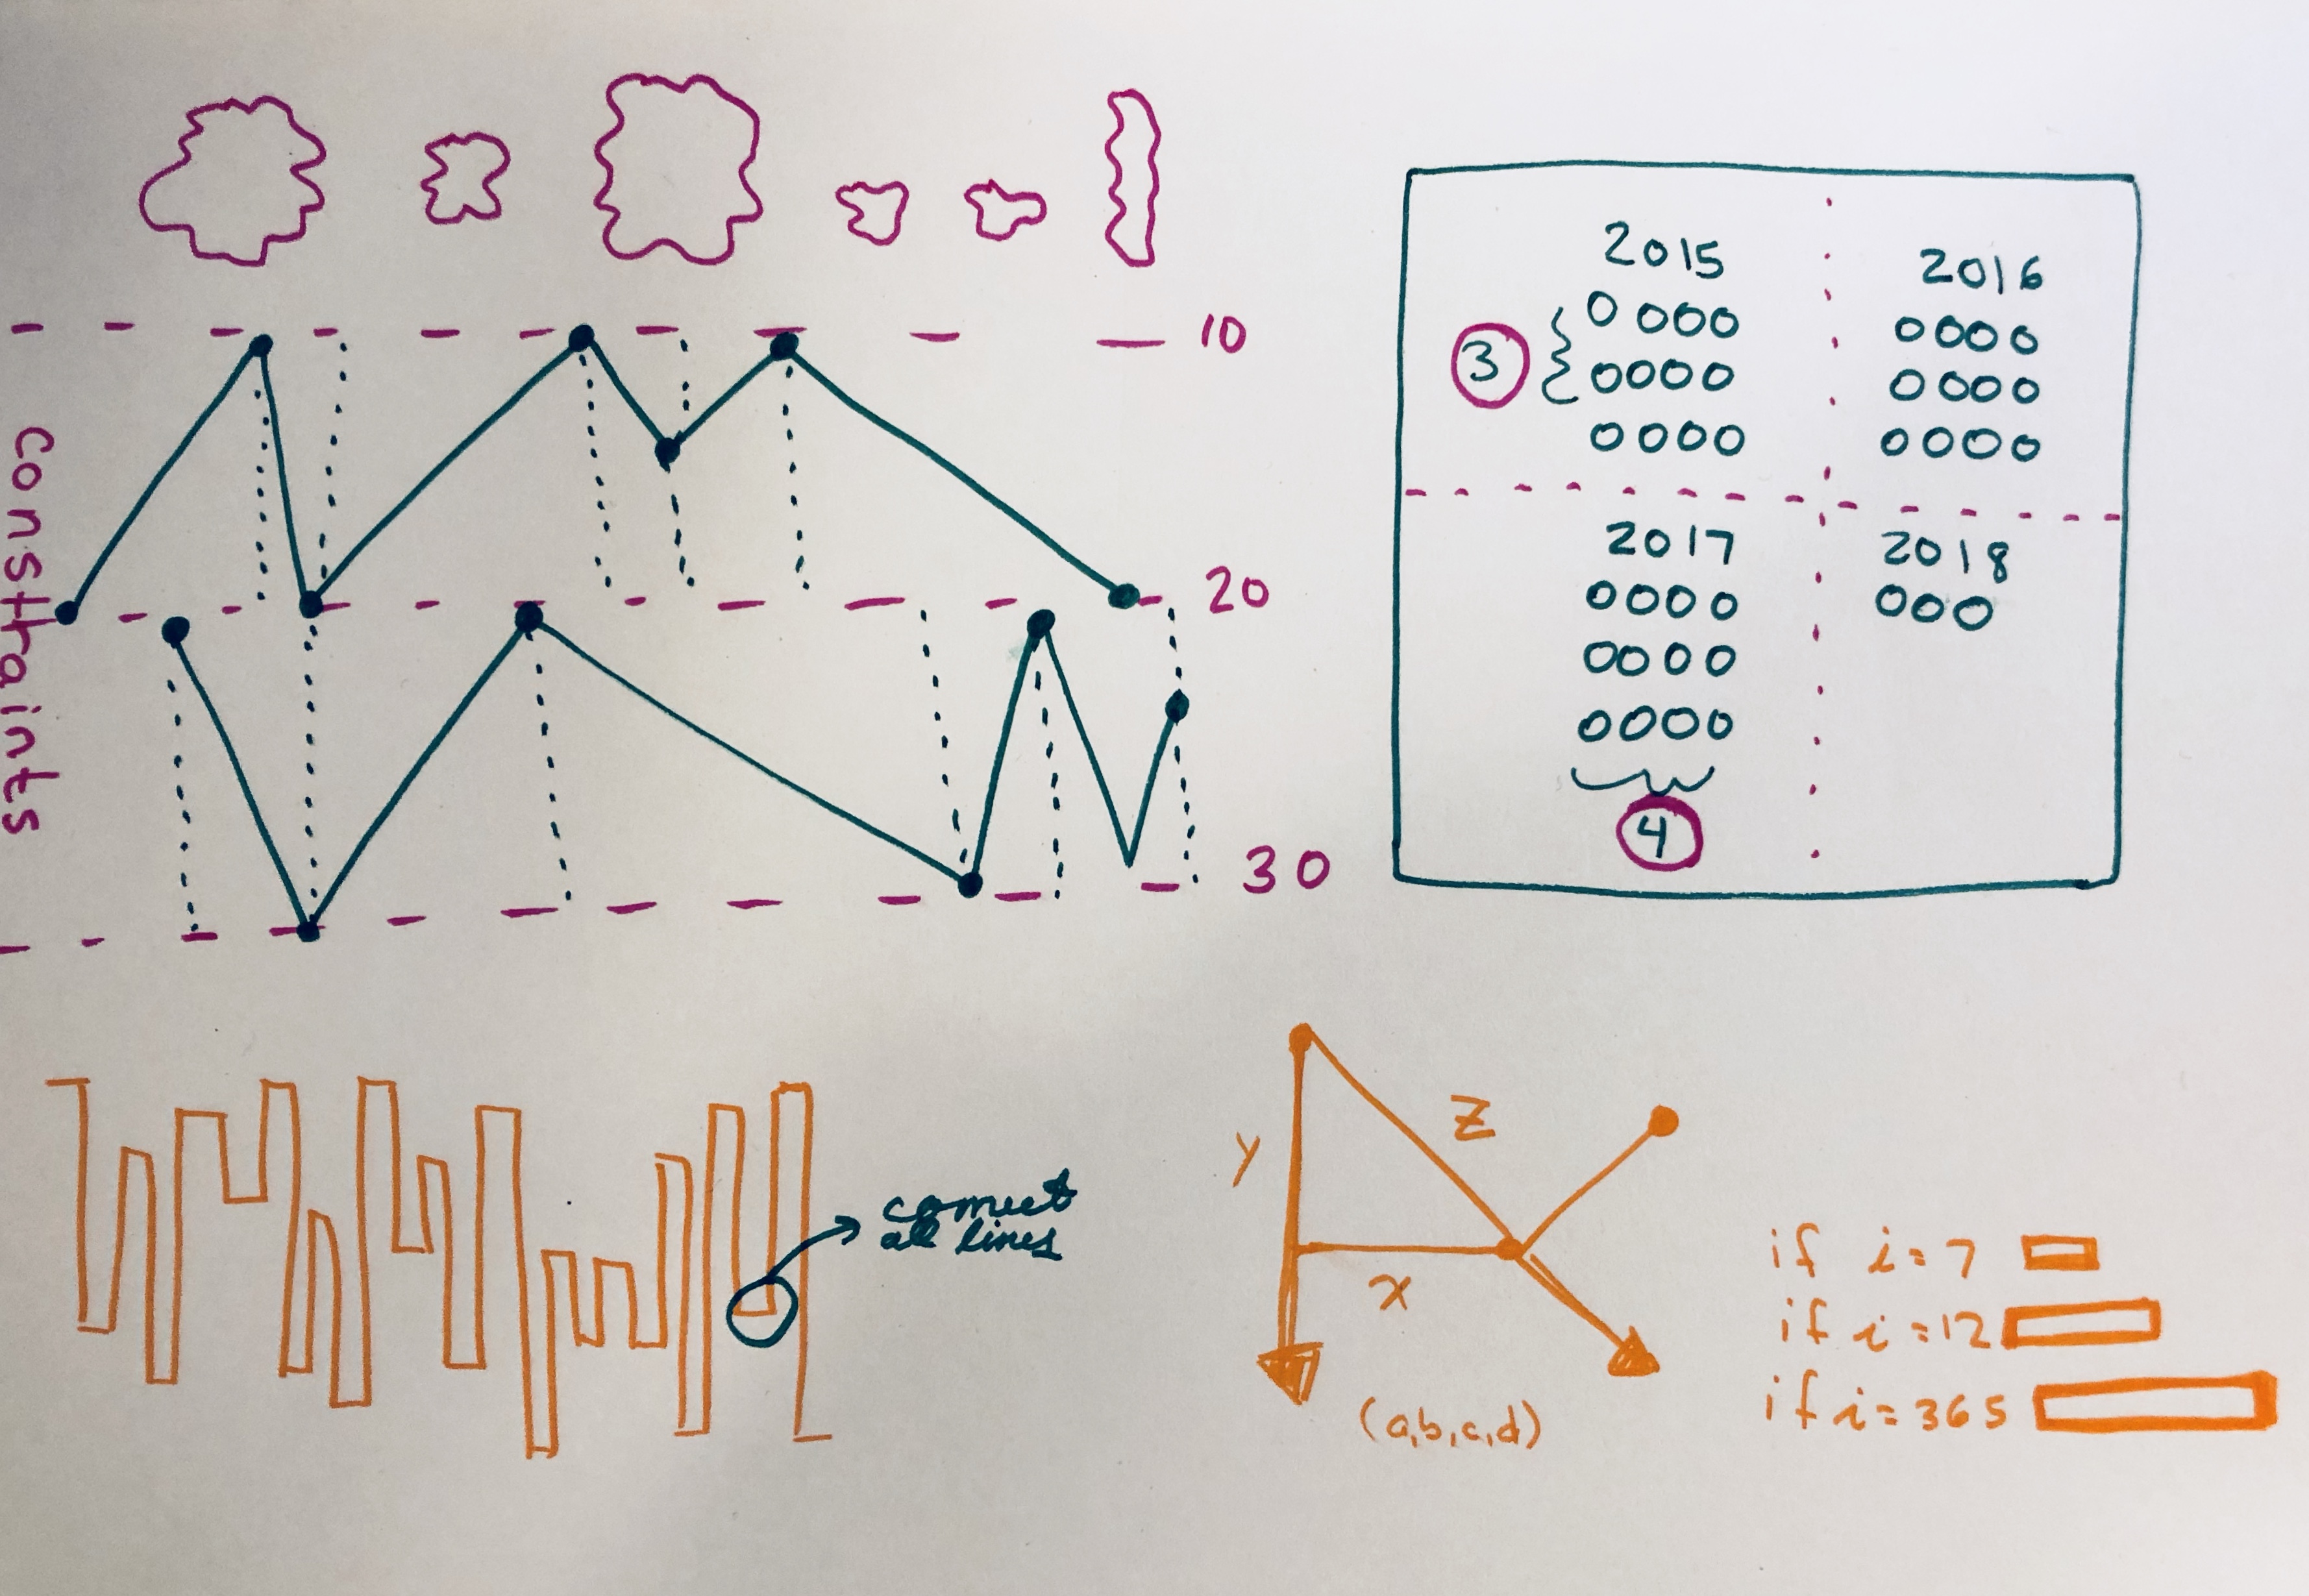 constraints
10
20
30
2015
0000
0000
0000
3
2016
0000
0000
0000
2017
0000
0000
0000
4
2018
000
connect
all lines
y
z
x
(a,b,c,d)
if i=7
if i=12
if i=365